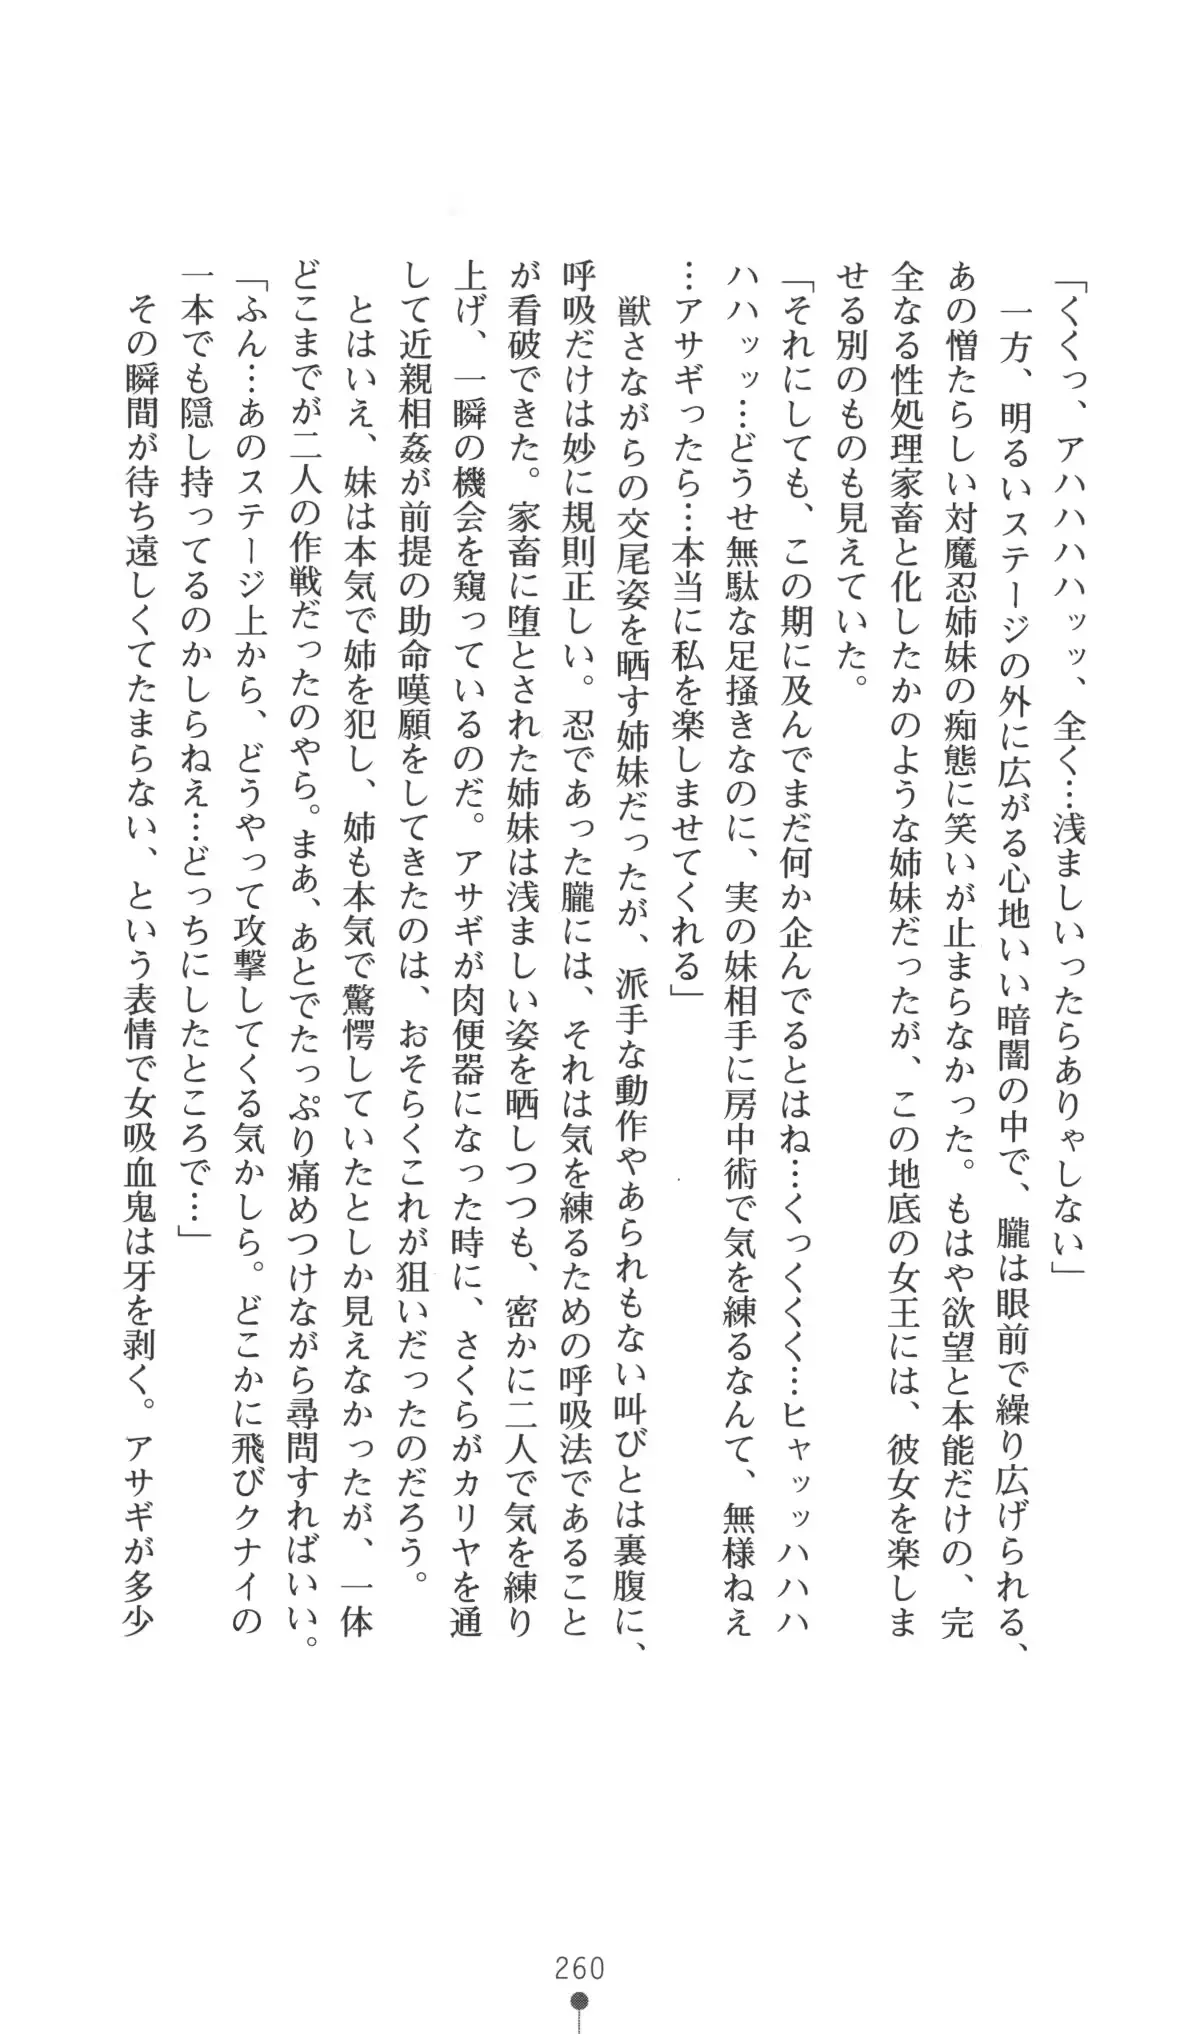 「くくっ、アハハハハッッ、全く…浅ましいったらありゃしない」
一方、明るいステージの外に広がる心地いい暗闇の中で、朧は眼前で繰り広げられる、
あの憎たらしい対魔忍姉妹の痴態に笑いが止まらなかった。もはや欲望と本能だけの、完
全なる性処理家畜と化したかのような姉妹だったが、この地底の女王には、彼女を楽しま
せる別のものも見えていた。
「それにしても、この期に及んでまだ何か企んでるとはね…くっくくく…ヒャッッハハハ
ハハッッ…どうせ無駄な足掻きなのに、実の妹相手に房中術で気を練るなんて、無様ねえ
…アサギったら…本当に私を楽しませてくれる」
獣さながらの交尾姿を晒す姉妹だったが、派手な動作やあられもない叫びとは裏腹に、
呼吸だけは妙に規則正しい。忍であった朧には、それは気を練るための呼吸法であること
が看破できた。家畜に堕とされた姉妹は浅ましい姿を晒しつつも、密かに二人で気を練り
上げ、一瞬の機会を窺っているのだ。アサギが肉便器になった時に、さくらがカリヤを通
して近親相姦が前提の助命嘆願をしてきたのは、おそらくこれが狙いだったのだろう。
とはいえ、妹は本気で姉を犯し、姉も本気で驚愕していたとしか見えなかったが、一体
どこまでが二人の作戦だったのやら。まあ、あとでたっぷり痛めつけながら尋問すればいい。
「ふん…あのステージ上から、どうやって攻撃してくる気かしら。どこかに飛びクナイの
一本でも隠し持ってるのかしらねえ…どっちにしたところで…」
その瞬間が待ち遠しくてたまらない、という表情で女吸血鬼は牙を剥く。アサギが多少
260